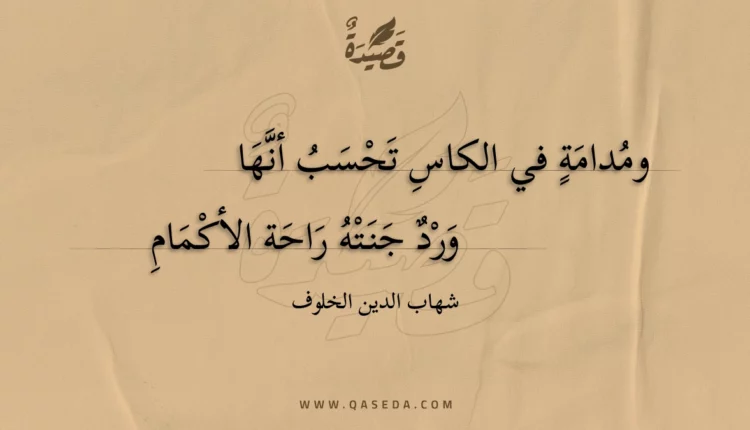 قَصِيدَةٌ
ومُدامَةٍ في الكاسِ تَحْسَبُ أنَّهَا
وَرْدٌ جَنَتْهُ رَاحَة الأكْمَامِ
شهاب الدين الخلوف
WWW.QASEDA.COM